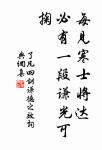 每見寒士將達
必有一段謙光可
掬
了凡四訓謙德之效詞
典網集